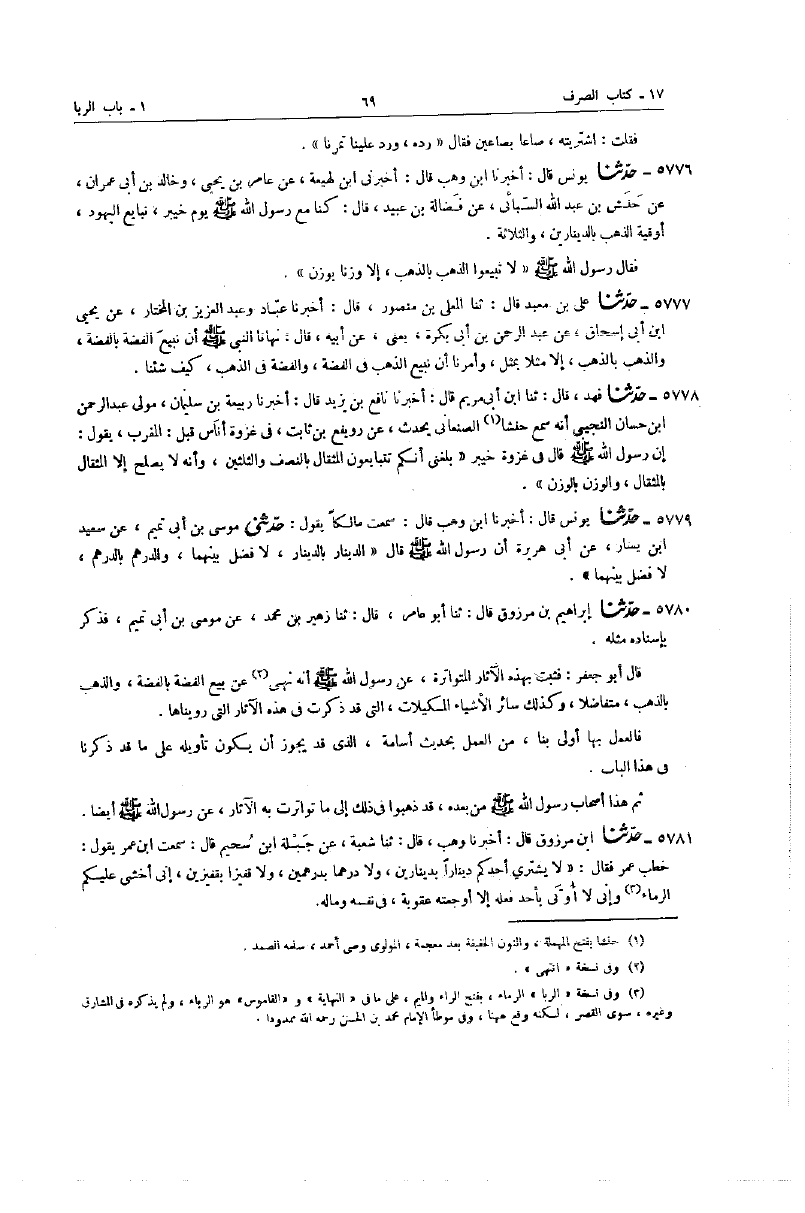 ١٧ - كتاب الصرف ٦٩ ١ - باب الربا
فقلت : اشتريته ، صاعا بصاعين فقال « رده ، ورد علينا تمرنا » .
٥٧٧٦ - حدثنا يونس قال : أخبرنا ابن وهب قال : أخبرنى ابن لهيعة ، عن عامر بن يحيى ، وخالد بن أبى عمران ،
عن حَنَش بن عبد الله السَّبائى ، عن فَضالة بن عبيد ، قال : كنا مع رسول الله ﷺ يوم خيبر ، نبايع اليهود ،
أوقية الذهب بالدينارين ، والثلاثة .
فقال رسول الله ﷺ « لا تبيعوا الذهب بالذهب ، إلا وزنا بوزن » .
٥٧٧٧ - حدثنا على بن معبد قال : ثنا المعلى بن منصور ، قال : أخبرنا عبّاد وعبد العزيز بن المختار ، عن يحيى
ابن أبى إسحاق ، عن عبد الرحمن بن أبى بكرة ، يعنى ، عن أبيه ، قال : نهانا النبى ﷺ أن نبيع الفضة بالفضة ،
والذهب بالذهب ، إلا مثلا بمثل ، وأمرنا أن نبيع الذهب فى الفضة ، والفضة فى الذهب ، كيف شئنا .
٥٧٧٨ - حدثنا فهد ، قال : ثنا ابن أبى مريم قال : أخبرنا نافع بن يزيد قال : أخبرنا ربيعة بن سليمان ، مولى عبدالرحمن
ابن حسان التجيبى أنه سمع حنشا(١) الصنعانى يحدث ، عن رويفع بن ثابت ، فى غزوة أناس قبل : المغرب ، يقول :
إن رسول الله ﷺ قال فى غزوة خيبر « بلغنى أنكم تتبايعون المثقال بالنصف والثلثين ، وأنه لا يصلح إلا المثقال
بالمثقال ، والوزن بالوزن » .
٥٧٧٩ - حدثنا يونس قال : أخبرنا ابن وهب قال : سمعت مالكاً يقول : حدثنى موسى بن أبى تميم ، عن سعيد
ابن يسار ، عن أبى هريرة أن رسول الله ﷺ قال « الدينار بالدينار ، لا فضل بينهما ، والدرهم بالدرهم ،
لا فضل بينهما » .
٥٧٨٠ - حدثنا إبراهيم بن مرزوق قال : ثنا أبو عامر ، قال : ثنا زهير بن محمد ، عن موسى بن أبى تميم ، فذكر
بإسناده مثله .
قال أبو جعفر : فثبت بهذه الآثار المتواترة ، عن رسول الله ﷺ أنه نهى(٢) عن بيع الفضة بالفضة ، والذهب
بالذهب ، متفاضلا ، وكذلك سائر الأشياء المكيلات ، التى قد ذكرت فى هذه الآثار التى رويناها .
فالعمل بها أولى بنا ، من العمل بحديث أسامة ، الذى قد يجوز أن يكون تأويله على ما قد ذكرنا
فى هذا الباب .
ثم هذا أصحاب رسول الله ﷺ من بعده ، قد ذهبوا فى ذلك إلى ما تواترت به الآثار ، عن رسول الله ﷺ أيضا .
٥٧٨١ - حدثنا ابن مرزوق قال : أخبرنا وهب ، قال : ثنا شعبة ، عن جَبَلة ابن سُحيم قال : سمعت ابن عمر يقول :
خطب عمر فقال : « لا يشتري أحدكم ديناراً بدينارين ، ولا درهما بدرهمين ، ولا قفيزا بقفيزين ، إنى أخشى عليكم
الرماء(٣) وإنى لا أُوتَى بأحد فعله إلا أوجعته عقوبة ، فى نفسه وماله.
(١) حنشا بفتح المهملة ، والنون الخفيفة بعد معجمة ، المولوى وصى أحمد ، سلمه الصمد .
(٢) وفى نسخة « انتهى » .
(٣) وفى نسخة « الربا » الرماء ، بفتح الراء والميم ، على ما فى « النهاية » و «القاموس» هو الرباء ، ولم يذكره فى المشارق
وغيره ، سوى القصر ، لكنه وقع ههنا ، وفى موطأ الإمام محمد بن الحسن رحمه الله ممدودا .